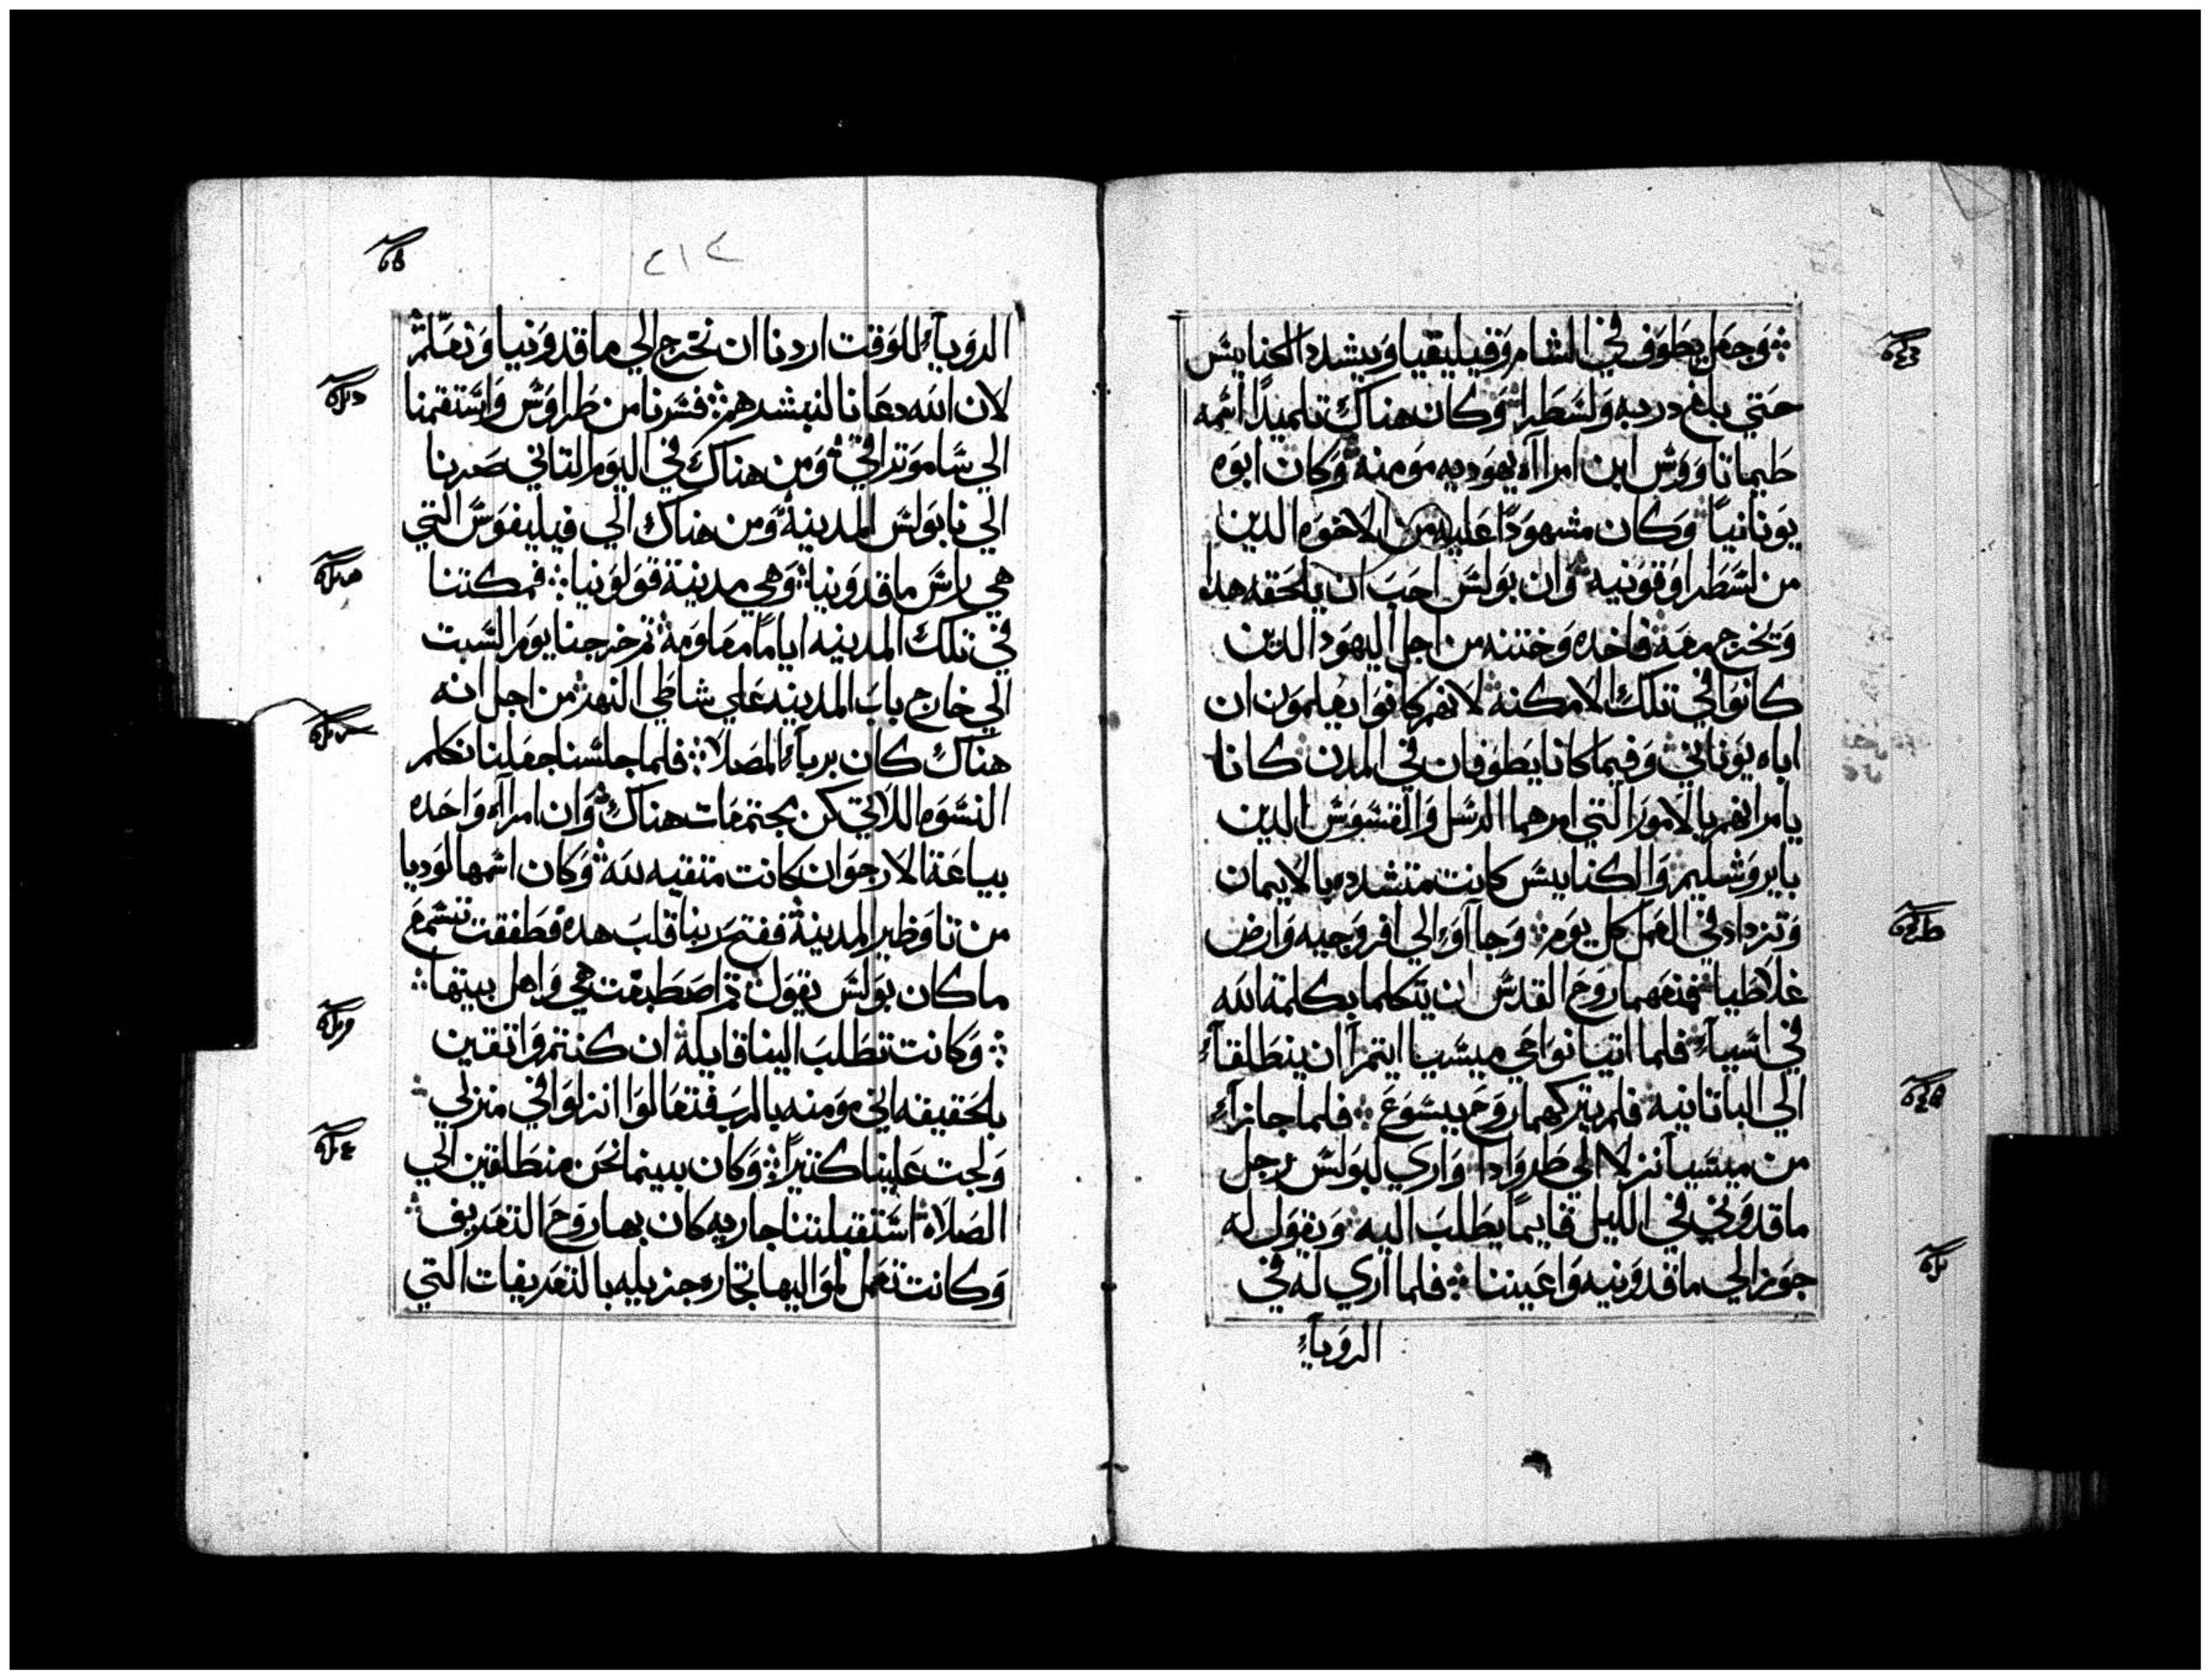 وجعل يطوف في الشام وقيليقيا ويشدد الكنايس
حتي بلغ دربه ولسطرا وكان هناك تلميدًا اسمه
طيماتاووس ابن امرااه يهوديه مومنه وكان ابوه
يونانيًا وكان مشهودًا عليه من الاخوه الدين
من لسطرا وقونيه وان بولس احب ان يلحقه هدا
وتخرج معه فاخده وختنه من اجل اليهود الدين
كانوا في تلك الامكنه لانهم كانوا يعلمون ان
اباه يوناني وفيما كانا يطوفان في المدن كانا
يامرانهم بالامور التي امرهما الرسل والقسوس الدين
بايروشليم والكنايس كانت متشدده بالايمان
وتزداد في العمل كل يوم وجااوا الي افروجيه وارض
غلاطيا فمنعهما روح القدس ان يتكلما بكلمة الله
في اسيا فلما اتيا نواحي ميسيا ايتمرا ان ينطلقا
الي الباتانيه فلم يتركهما روح يسوع فلما جازا
من ميسيا نزلا الي طروادا واري لبولس رجل
ماقدوني في الليل قايمًا يطلب اليه ويقول له
جوز الي ماقدونيه واعيننا فلما اري له في
الروياء
٤١٤
الروياء للوقت اردنا ان نخرج الي ماقدونيا ونعلم
لان الله دعانا لنبشرهم فسرنا من طراوس واستقمنا
الي ساموتراقي ومن هناك في اليوم التاني صرنا
الي نابولس المدينة ومن هناك الي فيليفوس التي
هي راس ماقدونيا وهي مدينة قولونيا فمكتنا
في تلك المدينه ايامًا معلومة تم خرجنا يوم السبت
الي خارج باب المدينه علي شاطي النهر من اجل انه
هناك كان يريا المصلا فلما جلسنا جعلنا نكلم
النسوه اللاتي كن مجتمعات هناك وان امرااه واحده
بياعة الارجوان كانت متقيه لله وكان اسمها لوديا
من تاوطير المدينة ففتح ربنا قلب هده فطفقت تسمع
ما كان بولس يقول تم اصطبغت هي واهل بيتها
وكانت تطلب الينا قايلة ان كنتم واتقين
بلحقيقه اني مومنه بالرب فتعالوا انزلوا في منزلي
ولجت علينا كتيرًا وكان بينما نحن منطلقين الي
الصلاه استقبلتنا جاريه كان بها روح التعريف
وكانت تعمل لمواليها تجاره جزيله بالتعريفات التي